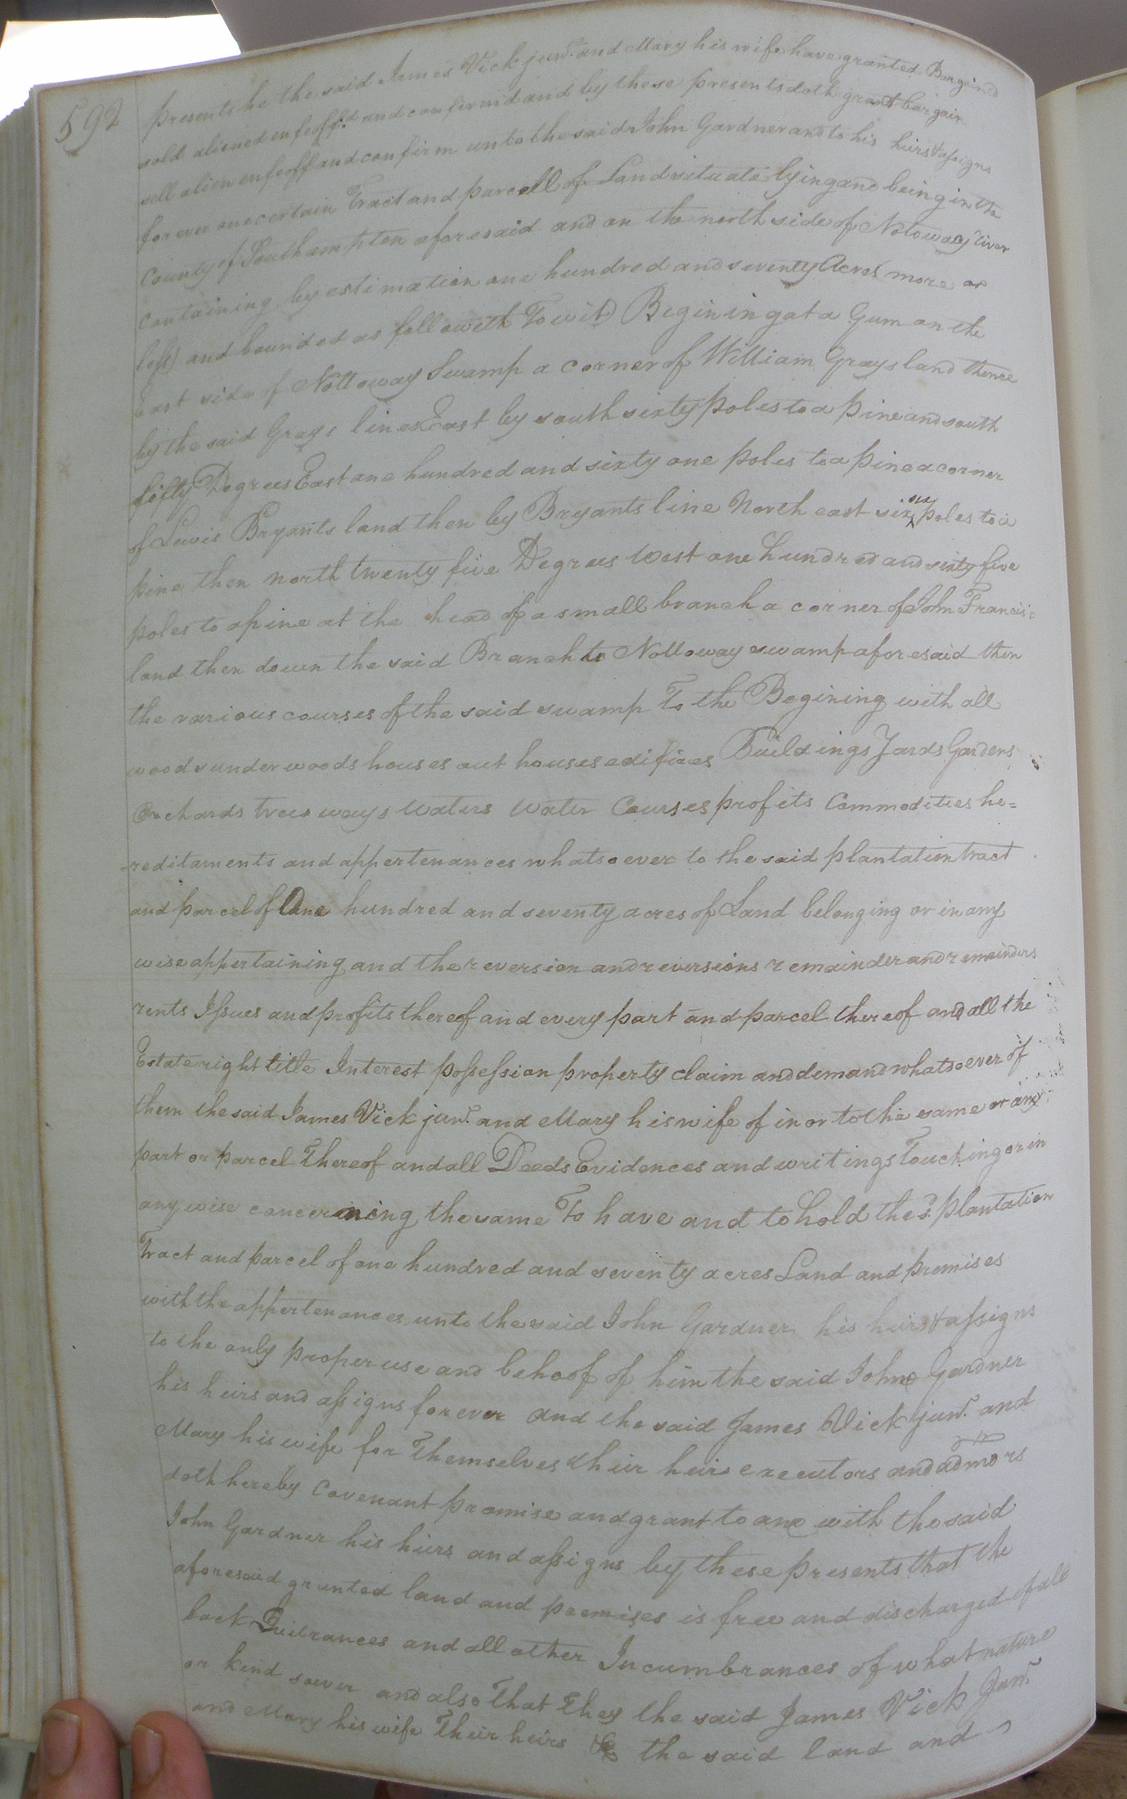 592
presents he the said James Vick junr. and Mary his wife have granted Bargind
sold aliened enfeoff'd and confirmd and by these presents doth grant bargain
sell alien enfeoff and confirm unto the said John Gardner and to his heirs & assigns
forever one certain Tract and parcell of Land situate lying and being in the
County of Southampton aforesaid and on the north side of Notoway river
containing by estimation one hundred and seventy Acres more or
less) and bounded as followith To wit) Begining at a Gum on the
East side of Nottoway Swamp a corner of William Grays land thence
by the said Grays lines East by south sixty poles to a pine and south
fifty Degrees East one hundred and sixty one poles to a pine a corner
of Lewis Bryants land then by Bryants line North east six poles to a
pine then north twenty five Degrees West one hundred and sixty five
poles to a pine at the head of a small branch a corner of John Francis's
land then down the said Branch to Nottoway swamp aforesaid then
the various courses of the said swamp To the Begining with all
woods underwoods houses out houses edifices Buildings Yards Gardens
Orchards trees ways Waters Water Courses profits Commodities he=
-reditaments and appertenances whatsoever to the said plantation tract
and parcel of One hundred and seventy acres of Land belonging or in any
wise appertaining and the reversion and reversions remainder and remainders
rents Issues and profits thereof and every part and parcel thereof and all the
Estate right title Interest possession property claim and demand whatsoever of
them the said James Vick junr. and Mary his wife of in or to the same or any
part or parcel Thereof and all Deeds Evidences and writings Touching or in
any wise concerning the same To have and to hold the sd. plantation
Tract and parcel of one hundred and seventy acres Land and premises
with the appertenances unto the said John Gardner his heirs & assigns
to the only proper use and behoof of him the said John Gardner
his heirs and assigns forever and the said James Vick junr. and
Mary his wife for Themselves their heirs executors and admors
doth hereby Covenant promise and grant to and with the said
John Gardner his heirs and assigns by these presents that the
aforesaid granted land and premises is free and discharged of all
back and all other Incumbrances of what nature
or kind soever and also That They the said James Vick Junr.
and Mary his wife Their heirs &c the said land and